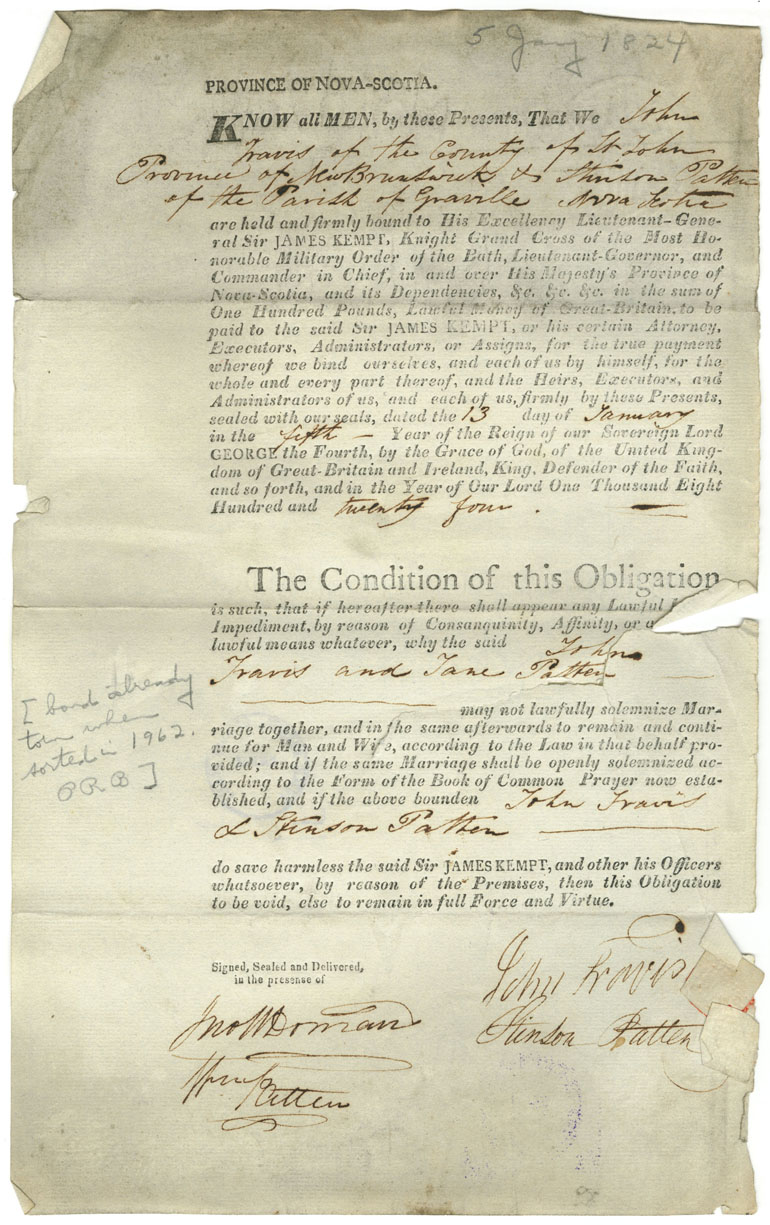 5 Jany 1824
PROVINCE OF NOVA-SCOTIA.
KNOW all MEN, by these Presents, That We John
Travis of the County of St John
Province of New Brunswick & Stinson Patten
of the Parish of Granville Nova Scotia
are held and firmly bound to His Excellency Lieutenant-Gene-
ral Sir JAMES KEMPT, Knight Grand Cross of the Most Ho-
norable Military Order of the Bath, Lieutenant-Governor, and
Commander in Chief, in and over His Majesty's Province of
Nova-Scotia, and its Dependencies, &c. &c. &c. in the sum of
One Hundred Pounds, Lawful Money of Great-Britain, to be
paid to the said Sir JAMES KEMPT, or his certain Attorney,
Executors, Administrators, or Assigns, for the true payment
whereof we bind ourselves, and each of us by himself, for the
whole and every part thereof, and the Heirs, Executors, and
Administrators of us, and each of us, firmly by these Presents,
sealed with our seals, dated the 13 day of January
in the fifth — Year of the Reign of our Sovereign Lord
GEORGE the Fourth, by the Grace of God, of the United King-
dom of Great-Britain and Ireland, King, Defender of the Faith,
and so forth, and in the Year of Our Lord One Thousand Eight
Hundred and twenty four .
The Condition of this Obligation
is such, that if hereafter there shall appear any Lawful
Impediment, by reason of Consanquinity, Affinity, or a
lawful means whatever, why the said John
Travis and Jane Patten
may not lawfully solemnize Mar-
riage together, and in the same afterwards to remain and conti-
nue for Man and Wife, according to the Law in that behalf pro-
vided; and if the same Marriage shall be openly solemnized ac-
cording to the Form of the Book of Common Prayer now esta-
blished, and if the above bounden John Travis
& Stinson Patten
do save harmless the said Sir JAMES KEMPT, and other his Officers
whatsoever, by reason of the Premises, then this Obligation
to be void, else to remain in full Force and Virtue.
[bond already
torn when
sorted in 1962.
P.R.B]
Signed, Sealed and Delivered,
in the presence of
John Travis
Stinson Patten
Patten